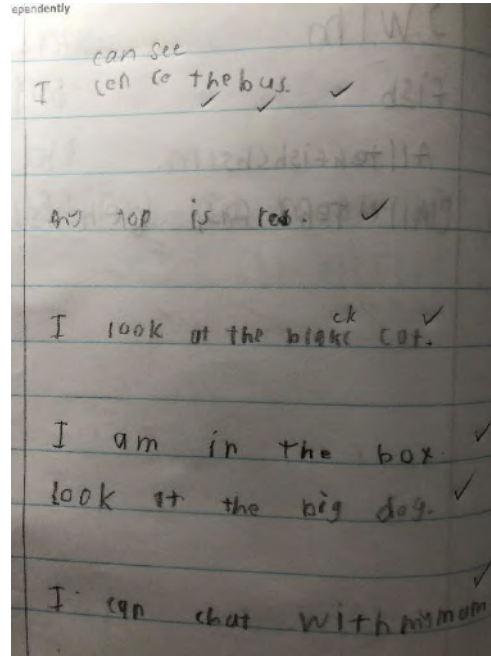 ependently
can see
I cen ce the bus.
my top is red.
ck
I look at the blakc cat.
I am in the box
look at the big dog.
I can chat with my mum